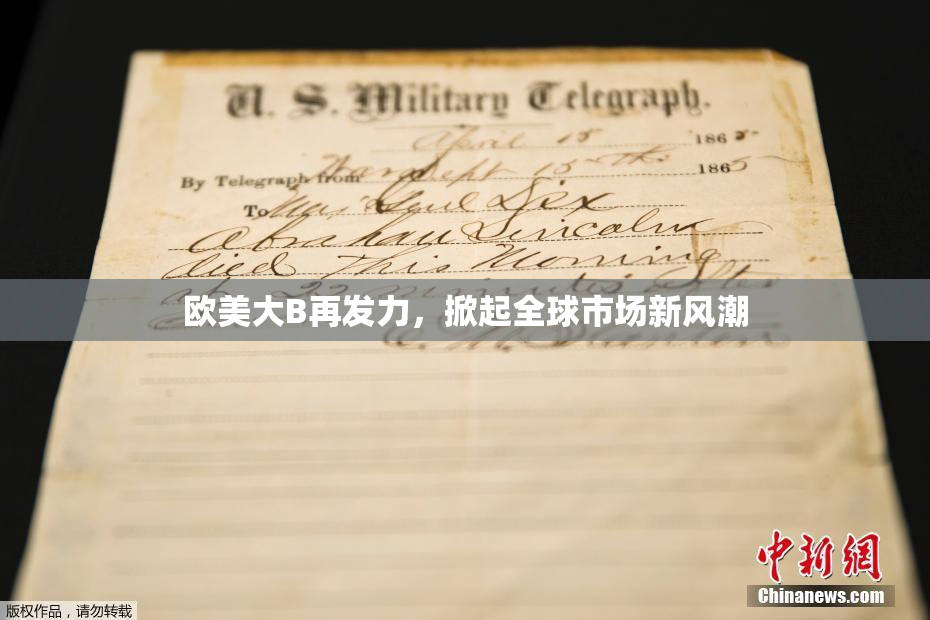 U. S. Military Telegraph.
April 15 1865
By Telegraph from War Dept 15th 1865
To Maj Genl Dix
Abraham Lincoln
died This Morning
at 22 minutes after
欧美大B再发力，掀起全球市场新风潮
Stanton
中新网
Chinanews.com
版权作品，请勿转载